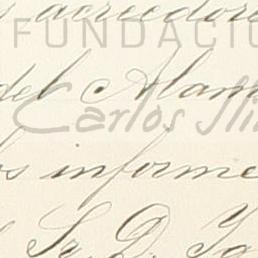 y acreedore
FUNDACIÓ
del Alam
Carlos Sli
os informe
Sr. D. Ig